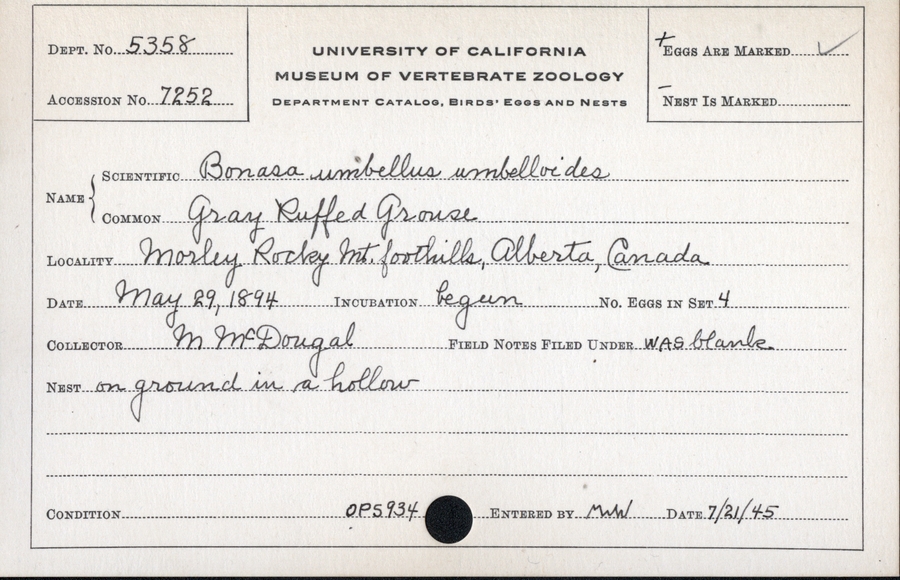 DEPT. NO. 5358
ACCESSION NO. 7252
UNIVERSITY OF CALIFORNIA
MUSEUM OF VERTEBRATE ZOOLOGY
DEPARTMENT CATALOG, BIRDS' EGGS AND NESTS
+ EGGS ARE MARKED ✓
– NEST IS MARKED
NAME { SCIENTIFIC Bonasa umbellus umbelloides
COMMON Gray Ruffed Grouse
LOCALITY Morley Rocky Mt. foothills, Alberta, Canada
DATE May 29, 1894 INCUBATION begun NO. EGGS IN SET 4
COLLECTOR M McDougal FIELD NOTES FILED UNDER WAS blank.
NEST on ground in a hollow
CONDITION OPS934 ENTERED BY MWW DATE 7/21/45